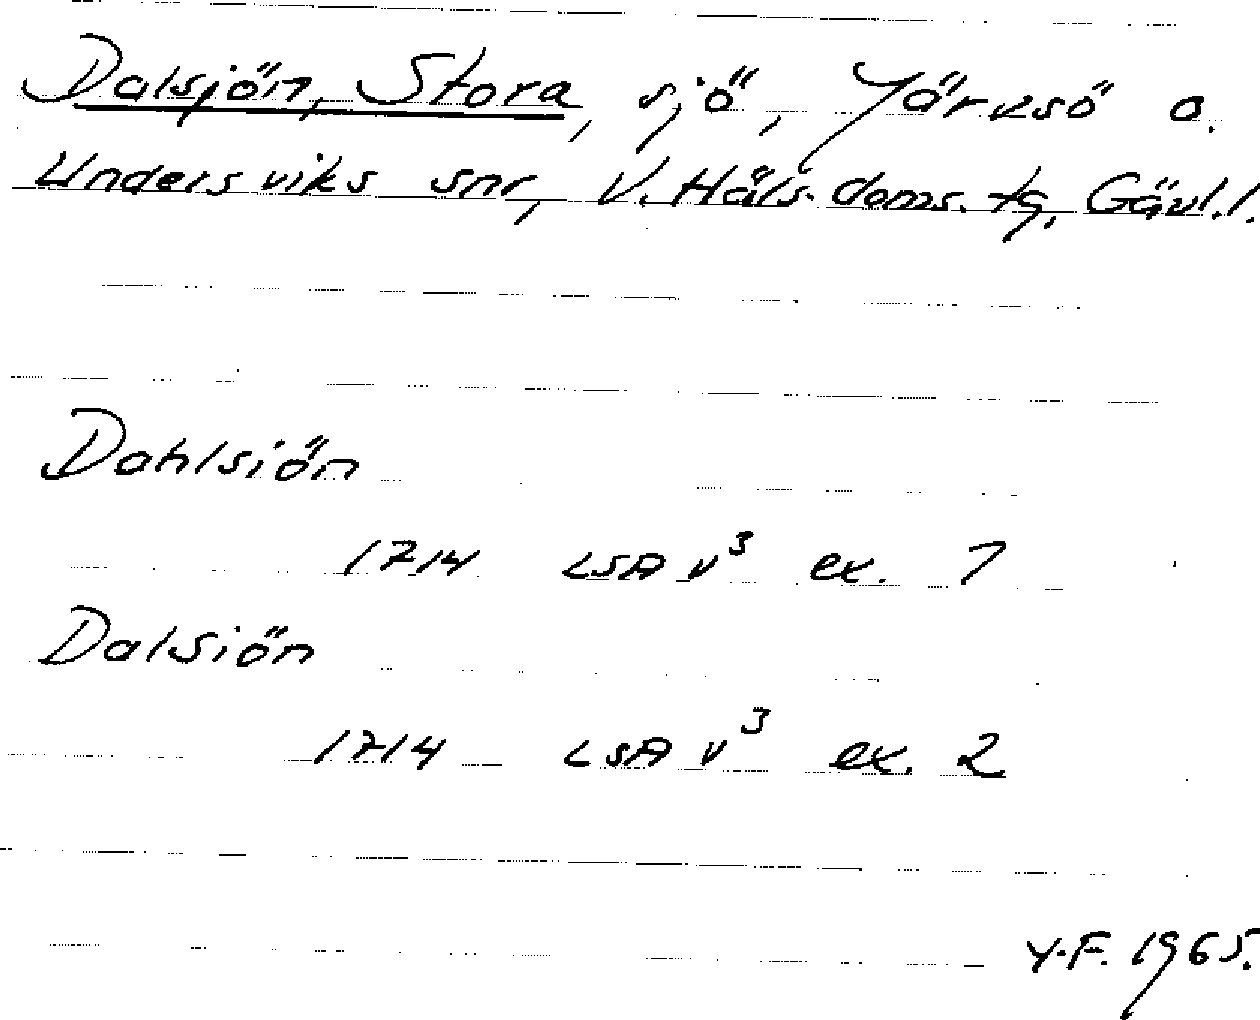 Dalsjön, Stora, sjö, Järvsö o.
Undersviks snr, V. Häls. doms. tg, Gävl. l.
Dahlsiön
1714 LSA v³ ex. 7
Dalsiön
1714 LSA v³ ex. 2
Y.F. 1965.